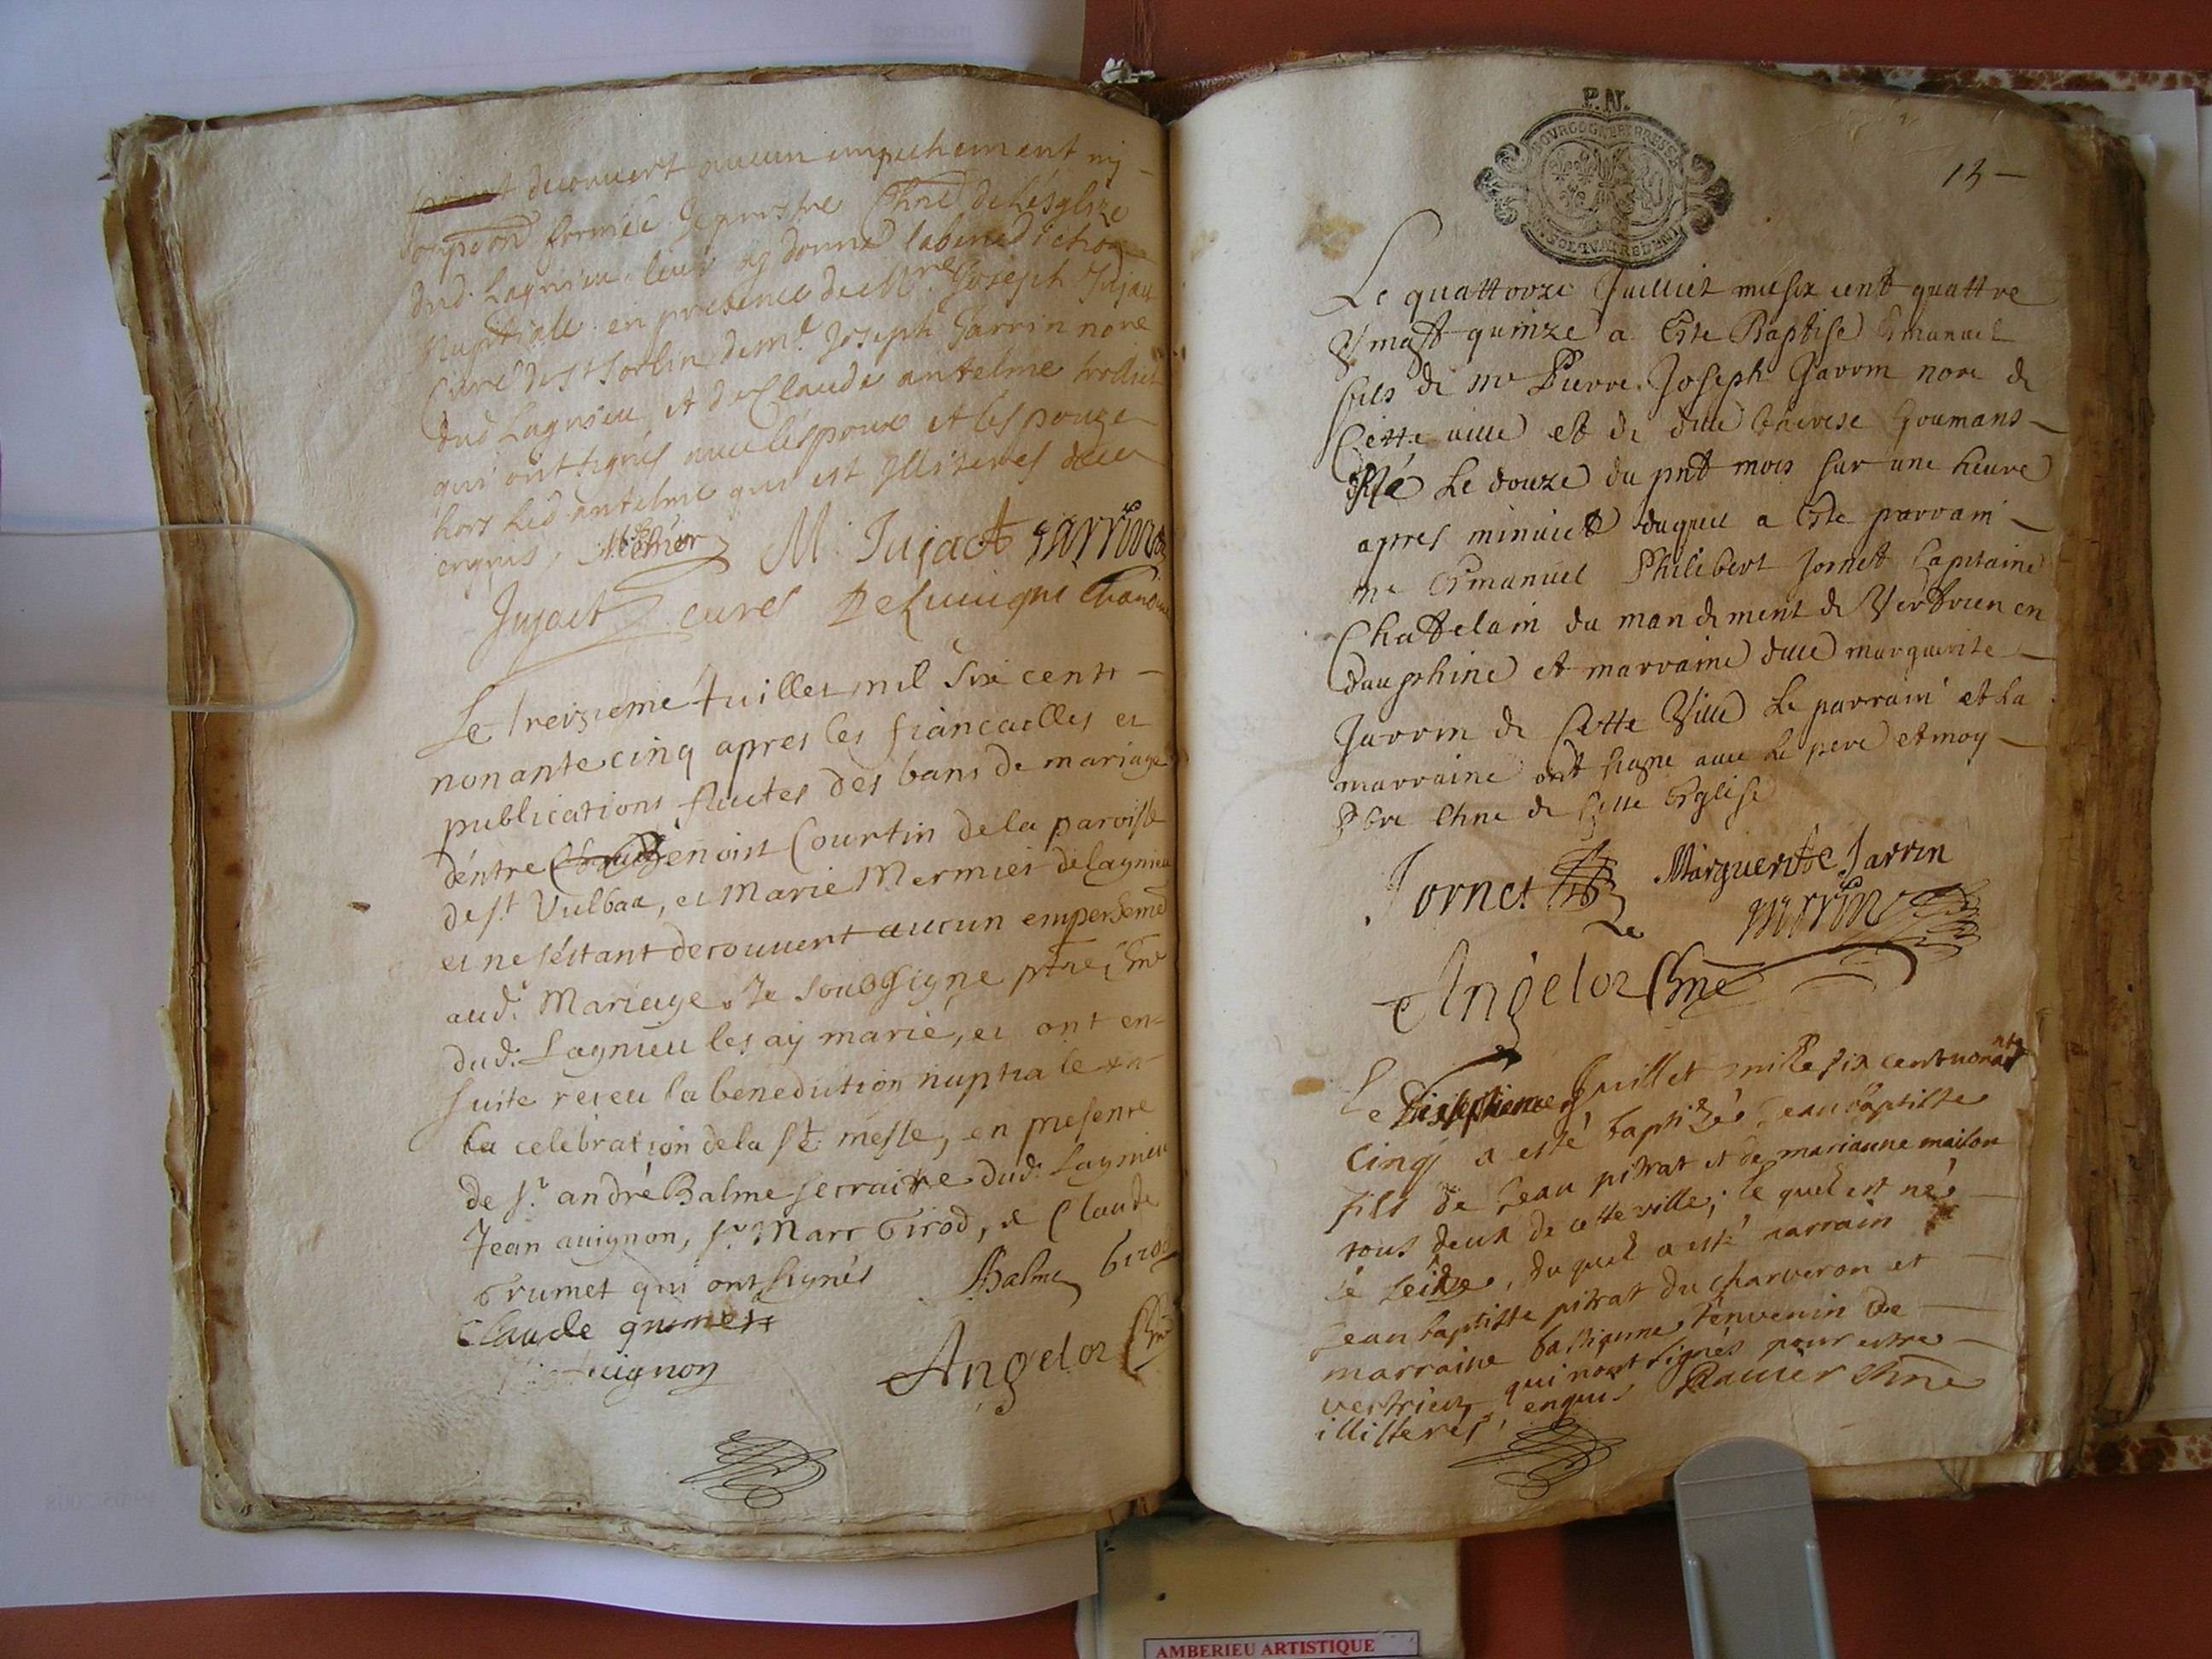 decouvert aucun empechement ny
formée Je prestre Chne de Lésglize
dud. Lagnieu leur ay donné la benediction
Nuptialle en presence de Mre Joseph Jujat
Curé de st Sorlin de me Joseph Jarrin nore
dud Lagnieu et de Claude antelme
qui ont signés avec l'espoux et l'espouze
hors led antelme qui est illiteres deue
enquis, M. Jujact Jarrin
Jujact curé Chanoine
Le treizieme Juillet mil Six cents
nonante cinq apres les fiançailles et
publications faictes des bans de mariage
déntre Benoist Courtin de la paroisse
de st Vulbaz, et Marie Mermier de Lagnieu
et ne s'éstant decouvert aucun empechemet
aud. Mariage, Je Soubsigné ptre Chne
dud. Lagnieu les ay marié, et ont en=
suite receu la benediction nuptiale
la celebration de la Ste. messe, en presence
de Sr. andré Balme secraitre dud. Lagnieu
Jean avignon, Sr. Marc Girod, & Claude
Grumet qui ont signés Balme Girod
Claude grumet
avignon Angelot Chne
P.N.
13
Le quattorze Juilliet mil six cent quattre
Vingt quinze a Este Baptisé Emanuel
fils de me Pierre Joseph Jarrin nore de
Cette ville et de dlle Therese Goumans
Né Le douze du pnt mois sur une heure
apres minuict duquel a Este parrain
me Emanuel Philibert Jornet Capitaine
Chattelain du mandement de Vertrieu en
dauphiné et marraine dlle marguerite
Jarrin de Cette Ville Le parrain et La
marraine ont signe avec Le pere et moy
Pbre Chne de Cette Esglise
Jornet Marguerite Jarrin
Jarrin
Angelot Chne
Le dixseptieme Juillet mille six cent nonante
Cinq a esté baptizé Jean baptiste
fils de Jean pitrat et de marianne maison
tous deux de cette ville; le quel est né
le seize, du quel a esté parrain
Jean baptiste pitrat du charveron et
marraine bastianne Tenvenin de
vertrieu qui n'ont signés pour estre
illisteres, enquis Ravier Chne
AMBERIEU ARTISTIQUE